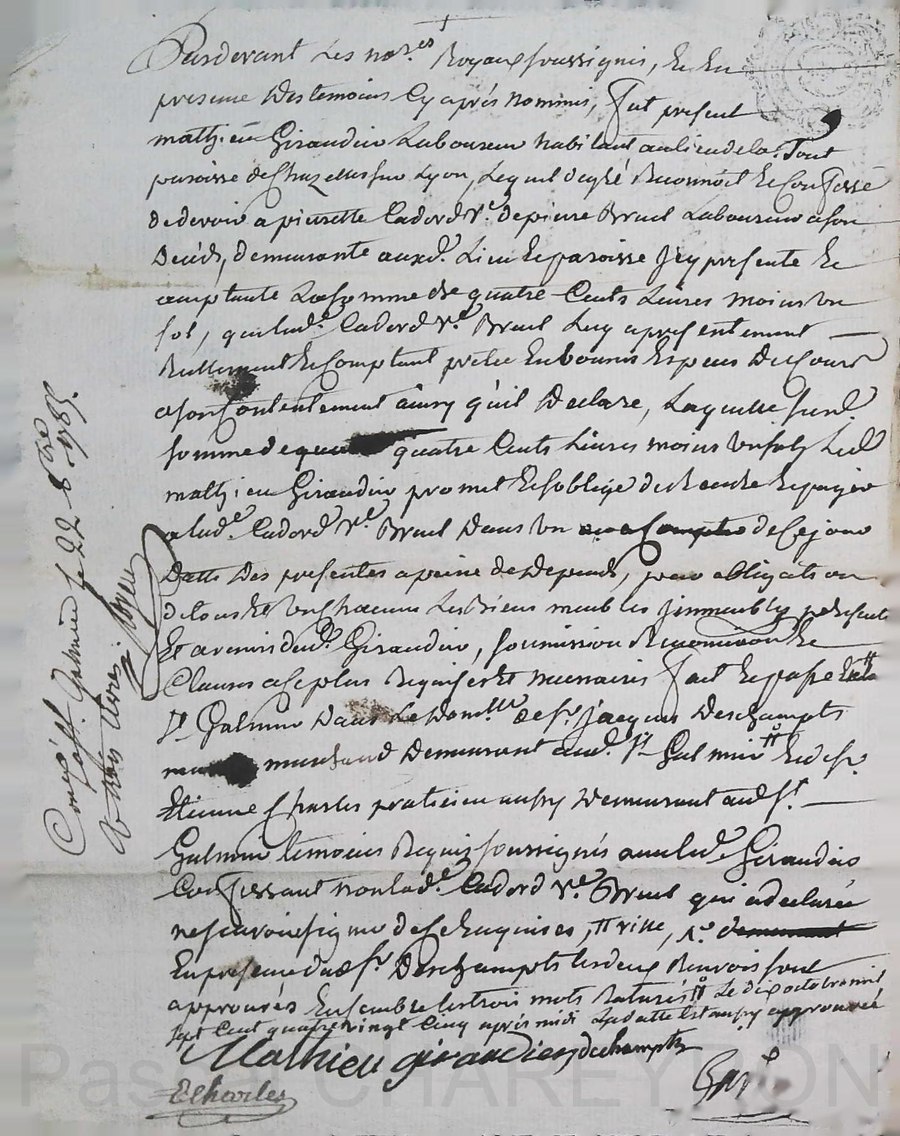 Pardevant Les no.res Royaux soussignés, Et En
presence Des temoins Cy après nommés, fut present
mathieu Giraudier Laboureur habitant au lieu de la Tout
paroisse de Chazelles sur Lyon, Lequel de gré Reconnoit Et Confesse
de devoir a pierrette Cadord v.e de pierre Bruel Laboureur a son
Decès, demeurante auxd. Lieu Et paroisse Icy presente Et
acceptante La somme de quatre Cents Livres moins un
sol, que lad.e Cadord v.e Bruel Luy a presentement
Reellement Et Comptant pretée En bonnes Especes De Cours
a son Contentement ainsy qu'il Declare, Laquelle susd.
somme de quatre Cents Livres moins un sol, Led
mathieu Giraudier promet Et s'oblige de Rendre Et payer
a lad.e Cadord v.e Bruel Dans un de Ce jour
Datte Des presentes a peine de Depends, pour obligation
de tous Et un Chacun Les Biens meubles Immeubles presents
Et avenir dud. Giraudier, soumission Renonciation Et
Clauses a ce plus Requises Et necessaires fait Et passé
S.t Galmier Dans Le Dom.lle de S.r jacques Deschampts
marchand Demeurant aud. S.t Galmier Et de S.r
Etienne Charles praticien aussy Demeurant aud S.t
Galmier temoins Requis soussignés avec led. Giraudier
Confessant non lad.e Cadord v.e Bruel qui a declaré
ne scavoir signer de ce Enquise,
En presence dud S.r Deschampts les deux Renvois sont
approuvés Ensemble les trois mots Raturés Le dix octobre mil
sept Cent quatre vingt Cinq après midi La datte Est aussy approuvée
Mathieu giraudier deschampts
E Charles
Con.lé a S.t Galmier le 22 8bre 1785.
R trois livres
Pascal CHAREYRON